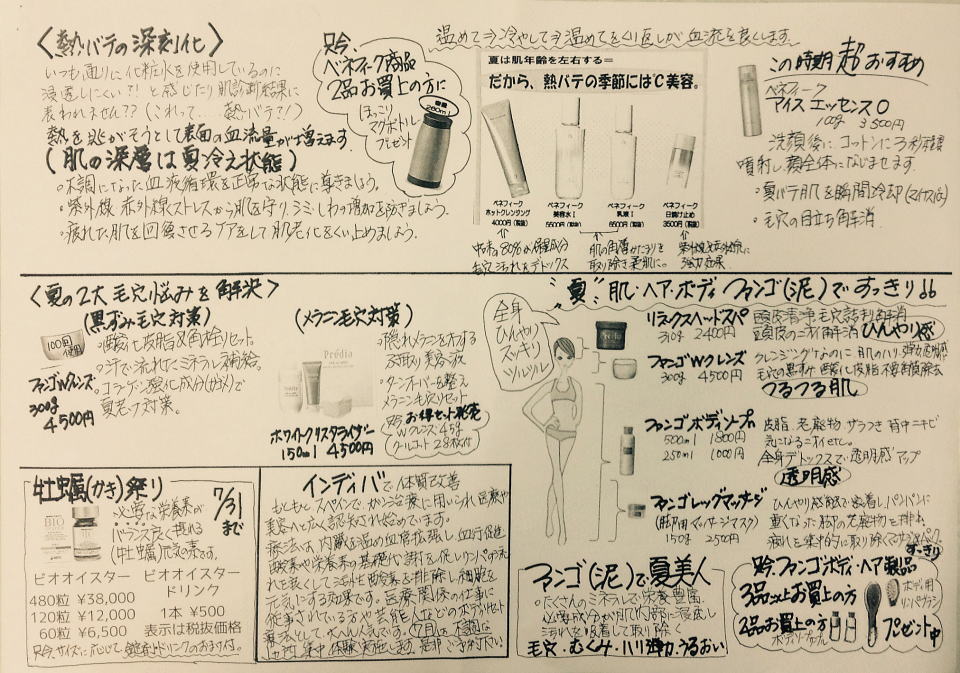 〈熱バテの深刻化〉
いつも通りに化粧水を使用しているのに
浸透しにくい?!と感じたり肌診断結果に
表われません??(これって...熱バテ?!)
熱を逃がそうとして表面の血流量が増えます
(肌の深層は夏冷え状態)
・不調になった血液循環を正常な状態に導きましょう。
・紫外線 赤外線 ストレスから肌を守り、シミしわの増加を防ぎましょう。
・疲れた肌を回復させるケアをして肌老化をくい止めましょう。
只今、
ベネフィーク商品
2品お買上の方に
ほっこり
マグボトル
プレゼント
容量
280ml
温めて⇒冷やして⇒温めてをくり返しが血流を良くします。
夏は肌年齢を左右する=
だから、熱バテの季節にはじ美容。
ベネフィーク
ホットクレンジング
4000円(税抜)
ベネフィーク
美容水Ⅰ
5500円(税抜)
ベネフィーク
乳液Ⅰ
6500円(税抜)
ベネフィーク
日焼け止め
3500円(税抜)
80%が保湿成分
毛穴汚れをデトックス
肌の角層かたまりを
取り除き柔肌に。
強力効果
この時期超おすすめ
ベネフィーク
アイスエッセンスO
100g 3500円
洗顔後にコットンに3秒程度
噴射し顔全体になじませます.
・夏バテ肌を瞬間冷却
・毛穴の目立ち解消
〈夏の2大毛穴悩みを解決〉
(黒ずみ毛穴対策)
・酸化皮脂&角栓リセット
・汗で流れたミネラル補給。
・コラーゲン酸化成分
夏老け対策。
100回
使用
ファンゴWクレンズ
300g
4500円
(メラニン毛穴対策)
・隠れメラニンをオフする
ふき取り美容液
・ターンオーバーを整え
メラニン毛穴リセット
只今お得セット発売
Wクレンズ45g
クールコット28枚付
Prédia
ホワイトクリスタライザー
150ml 4500円
夏"肌・ヘア・ボディ ファンゴ(泥)ですっきり!!
全身
ひんやり
スッキリ
ツルツル
リラックスヘッドスパ
310g 2400円
頭皮清浄毛穴詰り解消
頭皮のニオイ解消 ひんやり感
ファンゴWクレンズ
300g 4500円
クレンジングなのに肌のハリ、弾力
毛穴の黒ずみ 酸化皮脂 不要角質除去
つるつる肌
ファンゴボディソープn
500ml 1800円
250ml 1000円
皮脂、老廃物、ザラつき 背中ニキビ
気になるニオイせん。
全身デトックスで透明感アップ
透明感
ファンゴレッグマッサージ
(脚用マッサージマスク)
150g 2500円
ひんやり感触で密着し、パンパンに
重くなった脚の老廃物を排出。
疲れを集中的に取り除くマッサージパック。
すっきり
牡蠣(かき)祭り
7/31
まで
必要な栄養素が
バランス良く摂れる
(牡蠣)元気素です。
BIO
ビオオイスター
480粒 ¥38,000
120粒 ¥12,000
60粒 ¥6,500
ビオオイスター
ドリンク
1本 ¥500
表示は税抜価格
只今、サイズに応じて、錠剤かドリンクのおまけ付。
インディバで体質改善
もともとスペインで、がん治療に用いられ医療や
美容へと広く認知され始めています。
療法は、内臓を温め血管拡張し、血行促進
酸素や栄養素の基礎代謝を促しリンパの流
れを良くして活性酸素を排除し細胞を
元気にする効果です。医療関係の仕事に
従事されている方や芸能人などのホリスティック
療法として、大人気です。7月は、
集中体験実施します。是非ご予約下さい
ファンゴ(泥)で夏美人
・たくさんのミネラルで栄養豊富
必要成分が肌内部に浸透し
汚れを吸着して取り除く
毛穴・むくみ・ハリ弾力・うるおい
只今、ファンゴボディ・ヘア製品
3品以上お買上の方
2品お買上の方
ボディソープ
ボディ用
リンパブラシ
プレゼント中